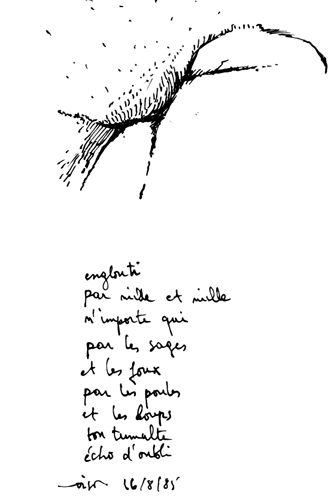 englouti
par mille et mille
n'importe qui
par les sages
et les foux
par les poules
et les loups
ton tumulte
écho d'oubli
16/8/85